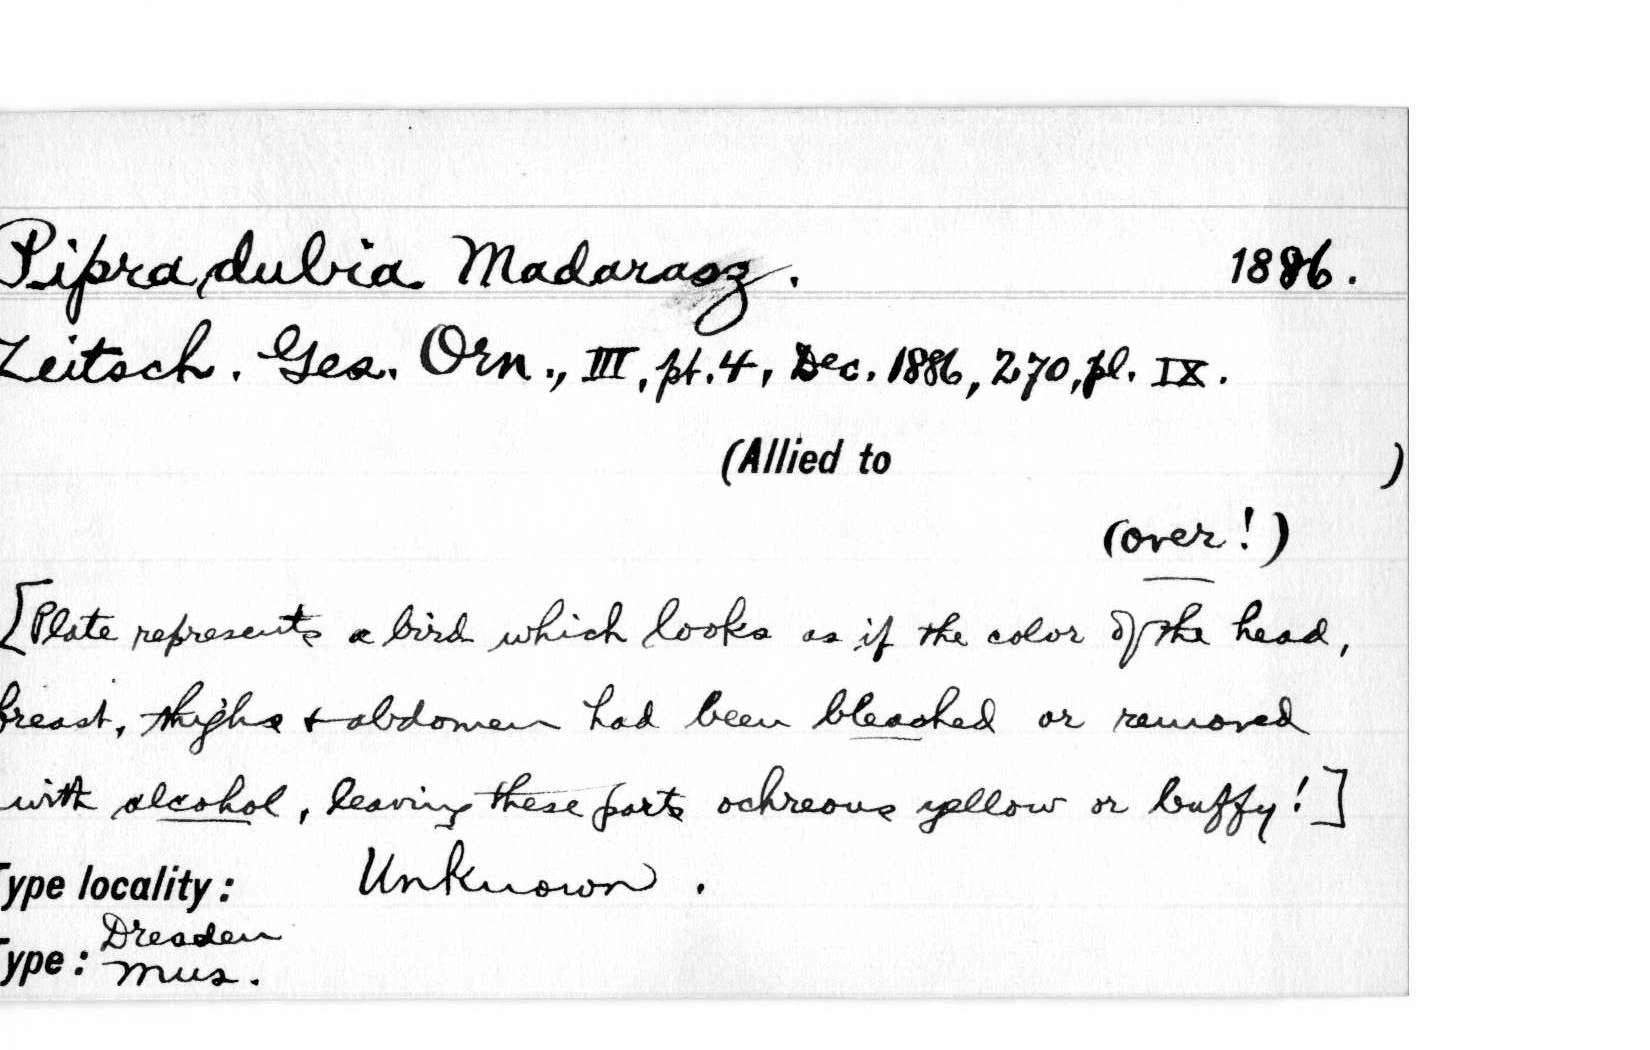 Pipra dubia Madarasz. 1886.
Zeitsch. Ges. Orn., III, pt. 4, Dec. 1886, 270, pl. IX.
(Allied to )
(over!)
[Plate represents a bird which looks as if the color of the head,
breast, thighs + abdomen had been bleached or removed
with alcohol, leaving these parts ochreous yellow or buffy!]
Type locality: Unknown.
Type: Dresden
Mus.